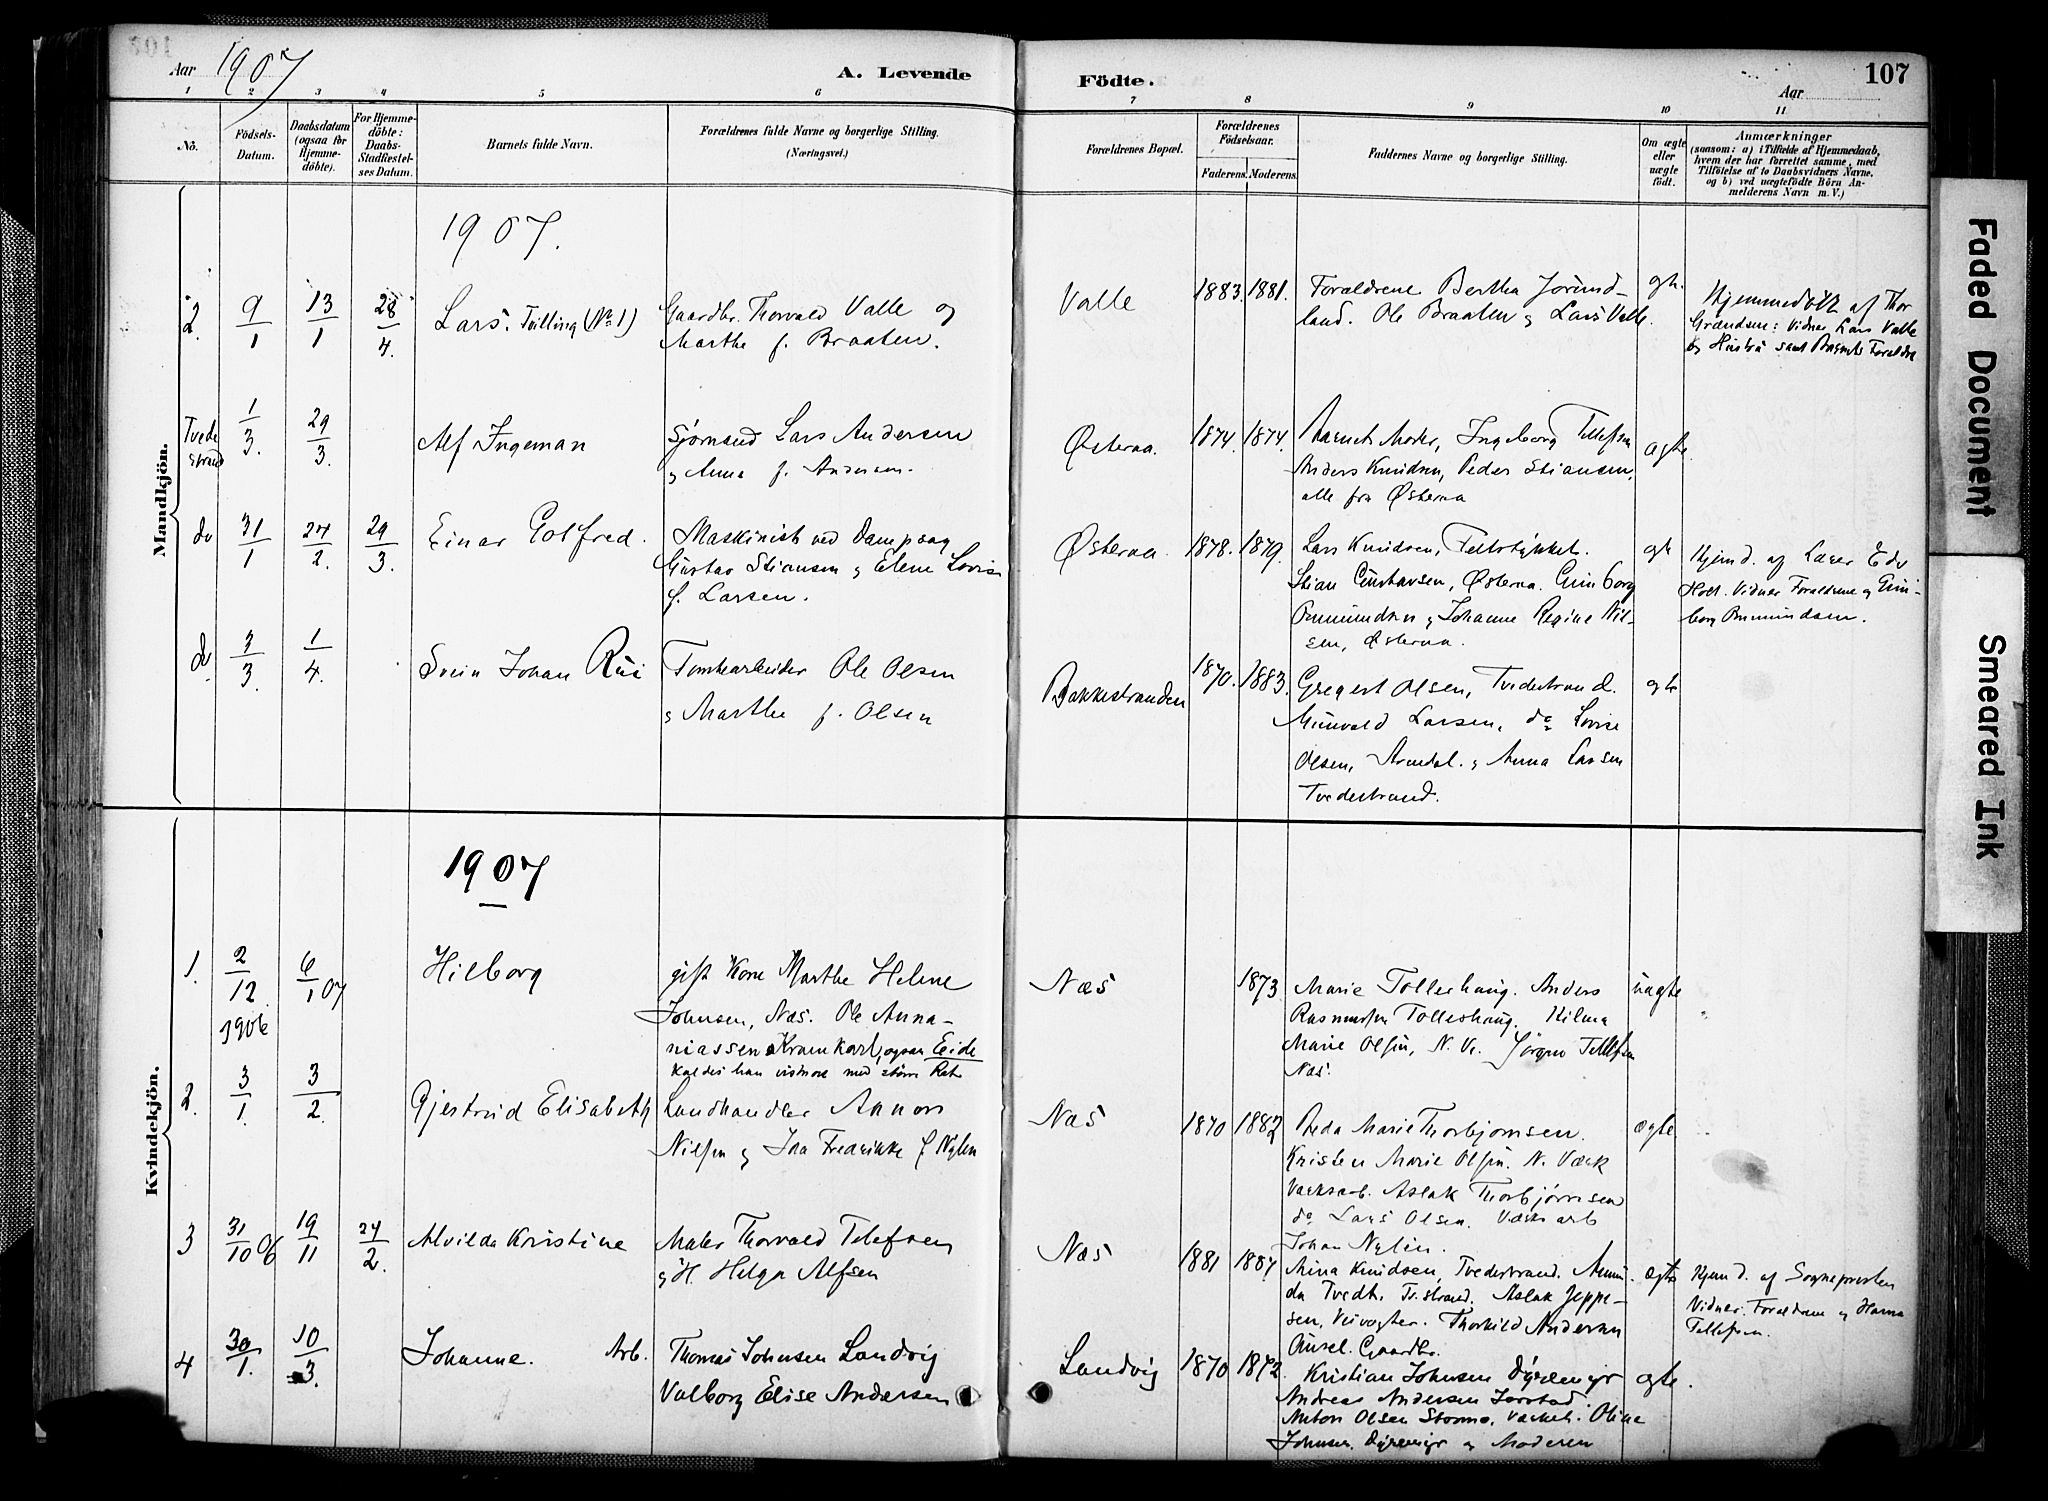 Aar 1907
A. Levende
Födte.
Aar
107
1 2 3 4 5 6 7 8 9 10 11
No.
Födsels-Datum.
Daabsdatum (ogsaa for Hjemme-döbte).
For Hjemme-döbte: Daabs-Stadfæstel-ses Datum.
Barnets fulde Navn.
Forældrenes fulde Navne og borgerlige Stilling.
(Næringsvei.)
Forældrenes Bopæl.
Forældrenes Födselsaar.
Faderens. Moderens.
Faddernes Navne og borgerlige Stilling.
Om ægte eller uægte födt.
Anmærkninger
(saasom: a) i Tilfælde af Hjemmedaab,
hvem der har forrettet samme, med
Tilföielse af to Daabsvidners Navne,
og b) ved uægtefödte Börn An-
melderens Navn m. V.)
Mandkjön.
1907.
2. 9/1 13/1 28/4. Lars. Tvilling (No 1)
Gaardbr. Thorvald Valle og
Marthe f. Braaten.
Valle 1883. 1881.
Forældrene Bertha Jorund-
land. Ole Braaten og Lars Valle.
ægte.
Hjemmedöbt af Thor
Vidner Lars Valle
og Hustru samt Barnets Forældre
Tvede
strand
1/3. 29/3. Alf Ingeman
Sjømand Lars Andersen
og Anna f. Andersen.
Østeraa. 1874. 1874.
Barnets Moder, Ingeborg Tellefsen
Anders Knudsen, Peder Stiansen,
alle fra Østeraa
ægte.
do 31/1 24/2. 29/3. Einar Gotfred.
Maskinist ved Dampsag
Gustav Stiansen og Elene Lovise
f. Larsen.
Østeraa. 1878. 1879.
Lars Knudsen,
Stian Gustavsen, Østeraa. Gunborg
Ommundsen og Johanne Regine Nil-
sen, Østeraa.
ægte
Hjemd. af Læger Edv
Holt. Vidner Forældrene og Gun-
borg Ommundsen.
do 3/3. 1/4. Svein Johan Rui
Tomtearbeider Ole Olsen
og Marthe f. Olsen
Bakkestranden 1870. 1883.
Gregert Olsen, Tvedestrand.
Gunvald Larsen, do Lovise
Olsen, Arendal. og Anna Larsen
Tvedestrand.
ægte
Kvindekjön.
1907
1. 2/12 1906 6/1 07 Hilborg
gift Kone Marthe Helene
Johnsen, Næs. Ole Anna-
niassen Kramkarl, ogsaa Eide
kaldes han vistnok med større Ret
Næs 1873
Marie Tolleshaug. Anders
Rasmussen Tolleshaug. Hilma
Marie Olsen, N. V. Jørgen Tellefsen
Næs.
uægte
2. 3/1. 3/2. Gjestrud Elisabeth
Landhandler Aanon
Nilsen og Ida Fredrikke f Nylen
Næs 1870 1882
Beda Marie Thorbjørnsen.
Kristen Marie Olsen. N. Værk
Værksarb. Aslak Thorbjørnsen
do Lars Olsen. Værksarb
Johan Nylen.
ægte
3 31/10 06 19/11 24/2. Alvilda Kristine
Maler Thorvald Tellefsen
og H. Helga Alfsen
Næs 1881 1887
Mina Knudsen, Tvedestrand. Amun-
da Tvedt. Tv.strand. Aslak Jeppe-
sen, Veivogter. Thorkild Andersen
Gaardbr.
ægte
Hjemd. af Sognepresten
Vidner. Forældrene og Hanna
Tellefsen.
4 30/1. 10/3. Johanne.
Arb. Thomas Johnsen Landvig
Valborg Elise Andersen
Landvig 1870 1872.
Kristian Johnsen Dyremyr
Andreas Andersen
Anton Olsen Værket. Oline
Johnsen. Dyremyr og Moderen
ægte.
Faded Document
Smeared Ink